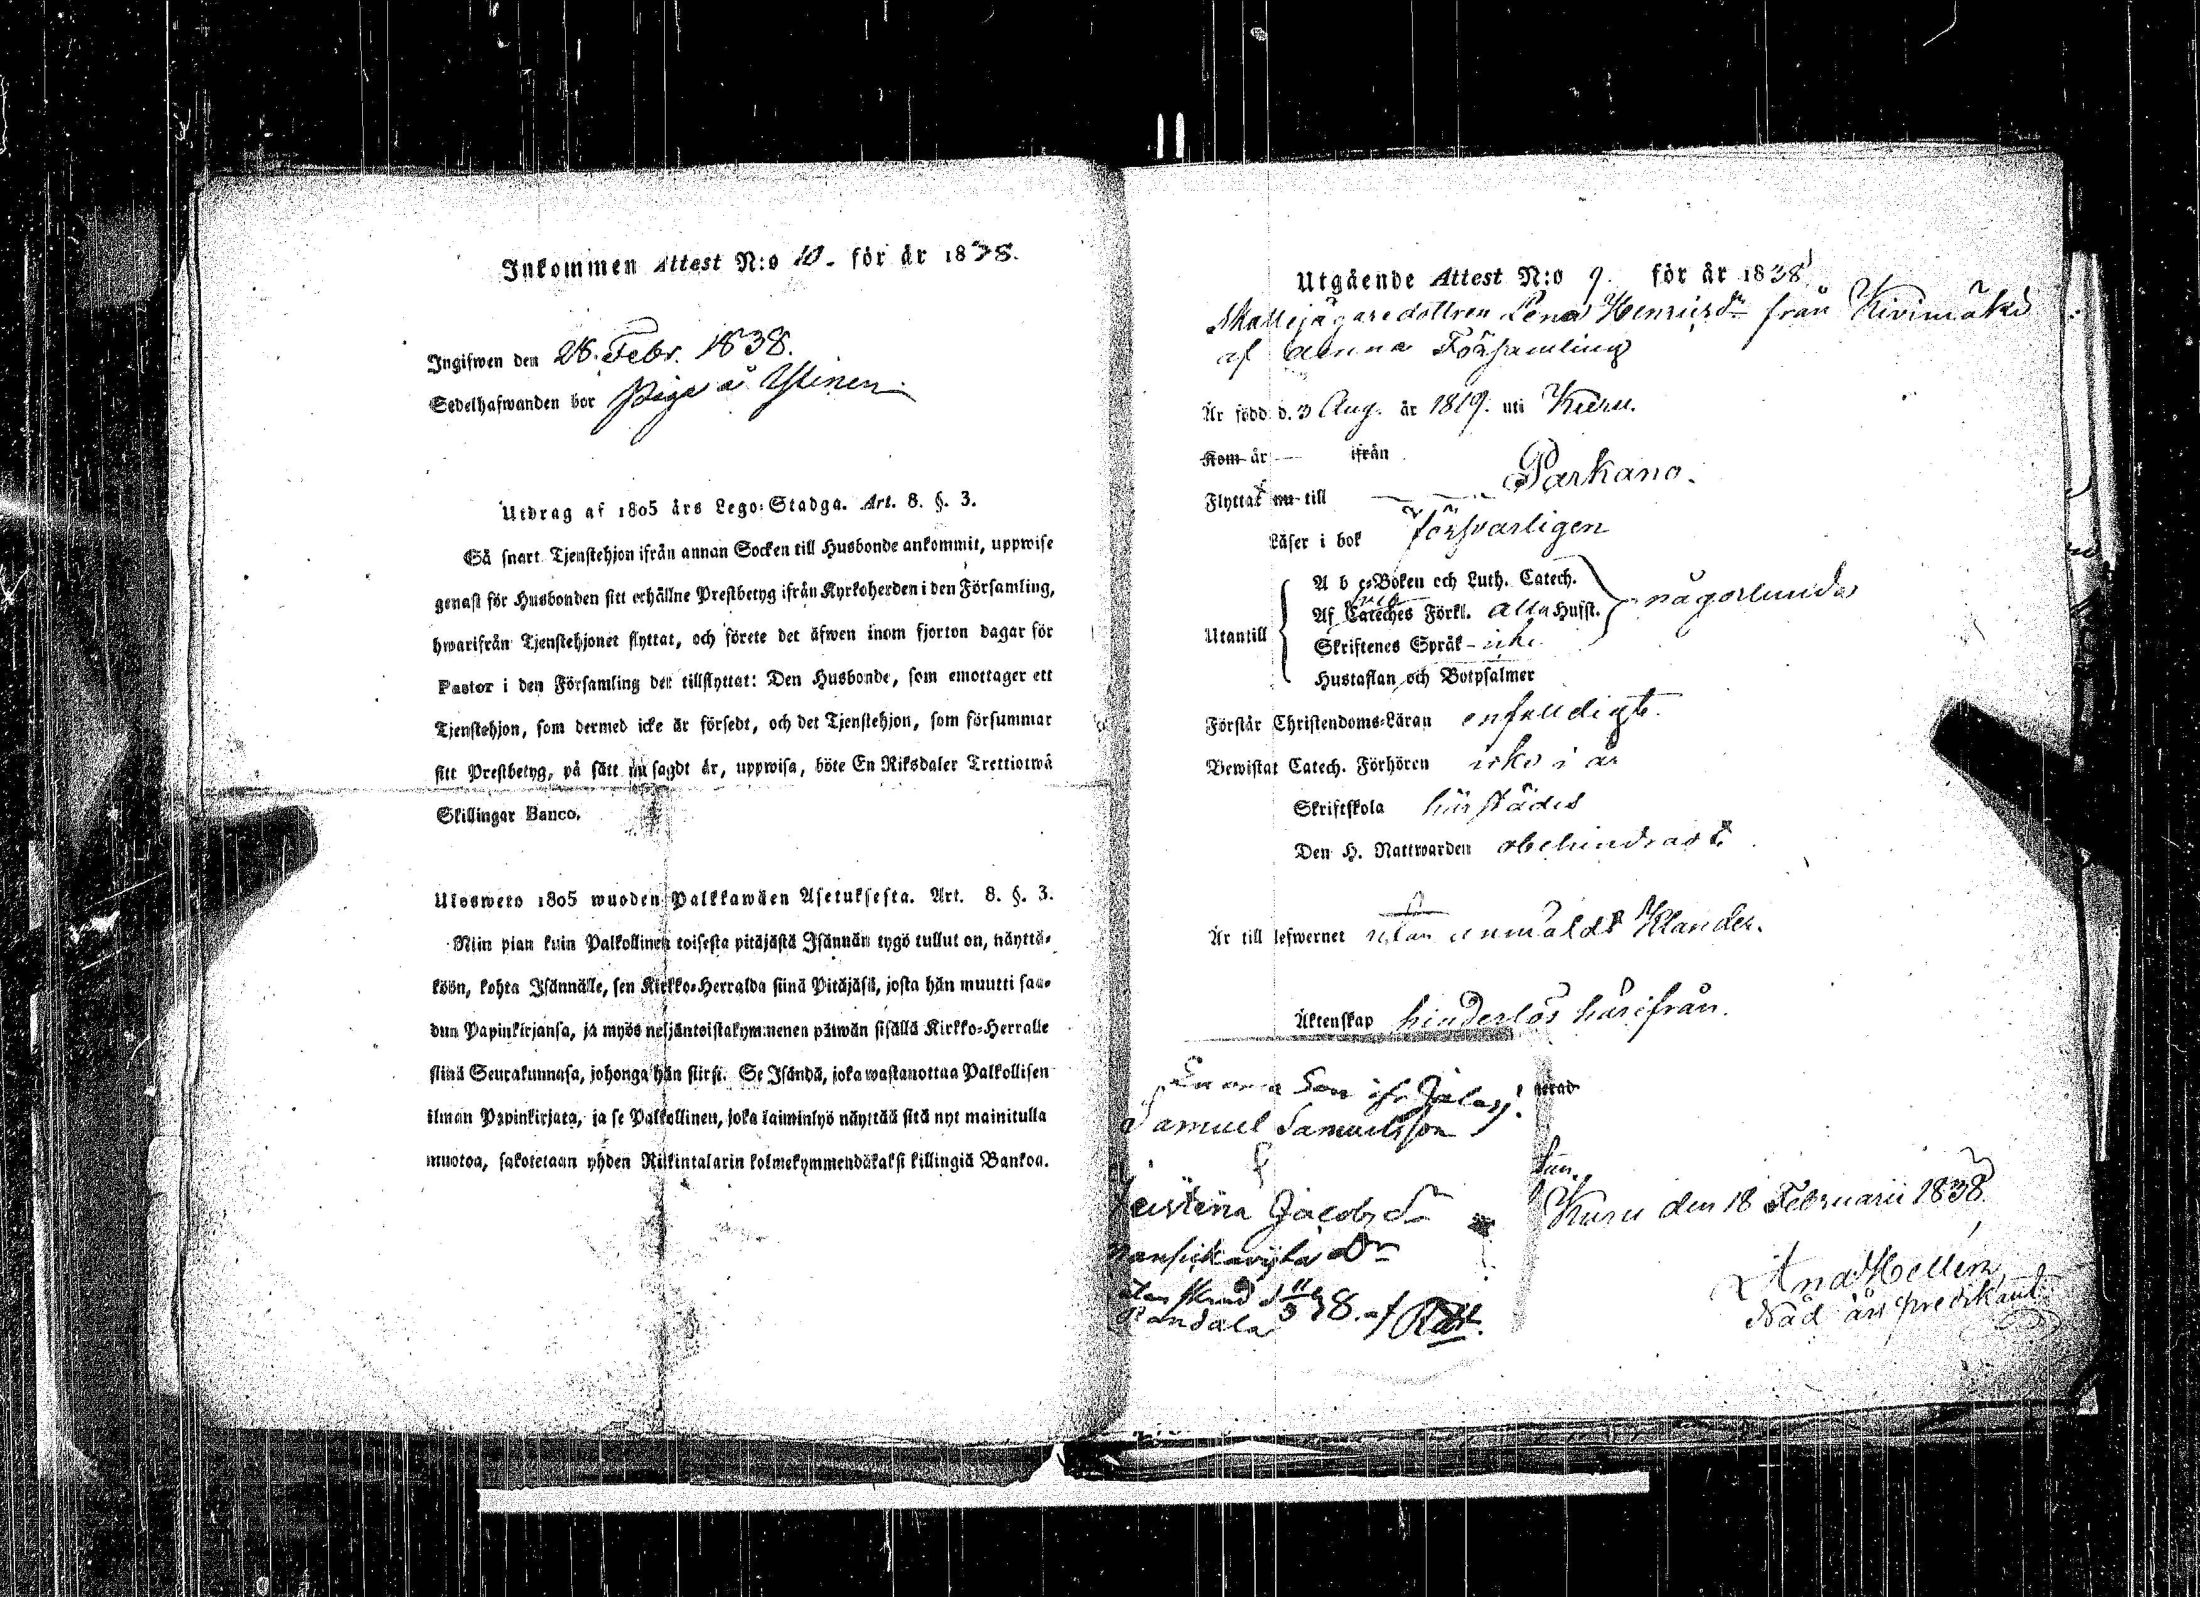 Inkommen Attest N:o 10. för år 1838.
Ingifwen den 28. Febr. 1838.
Sedelhafwanden bor Piga å Ylinen
Utdrag af 1805 års Lego-Stadga. Art. 8. §. 3.
Så snart Tjenstehjon ifrån annan Socken till Husbonde ankommit, uppwise
genast för Husbonden sitt erhållne Prestbetyg ifrån Kyrkoherden i den Församling,
hwarifrån Tjenstehjonet flyttat, och förete det äfwen inom fjorton dagar för
Pastor i den Församling det tillflyttat: Den Husbonde, som emottager ett
Tjenstehjon, som dermed icke är försedt, och det Tjenstehjon, som försummar
sitt Prestbetyg, på sätt nu sagdt är, uppwisa, böte En Riksdaler Trettiotwå
Skillingar Banco.
Ulosweto 1805 wuoden Palkkawäen Asetuksesta. Art. 8. §. 3.
Niin pian kuin Palkollinen toisesta pitäjästä Isännän tygö tullut on, näyttä-
köön, kohta Isännälle, sen Kirkko-Herralda siinä Pitäjäsä, josta hän muutti saa-
dun Papinkirjansa, ja myös neljäntoistakymmenen päiwän sisällä Kirkko-Herralle
siinä Seurakunnasa, johonga hän siirsi. Se Isändä, joka wastanottaa Palkollisen
ilman Papinkirjata, ja se Palkollinen, joka laiminlyö näyttää sitä nyt mainitulla
muotoa, sakotetaan yhden Riikintalarin kolmekymmendäkaksi killingiä Bankoa.
Utgående Attest N:o 9. för år 1838
Skallejägaredottren Lena Henricsdr från Kivimäki
af denna Församling
Är född d. 3 Aug. år 1819. uti Kuru.
Kom år — ifrån
Flyttar nu till Parkano.
Läser i bok försvarligen
A b c-Boken och Luth. Catech.
Af Cateches Förkl. alla Hufst. någorlunda
Utantill
Skriftenes Språk - icke
Hustaflan och Botpsalmer
Förstår Christendoms-Läran enfaldigt.
Bewistat Catech. Förhören icke i år
Skriftskola härstädes
Den H. Nattwarden obehindrad
Är till lefwernet utan anmäldt Klander.
Äktenskap hinderlös härifrån.
Samuel Samuelsson
Jacobsdr
Kuru den 18 Februarii 1838.
And Hellen
Nåd års predikant